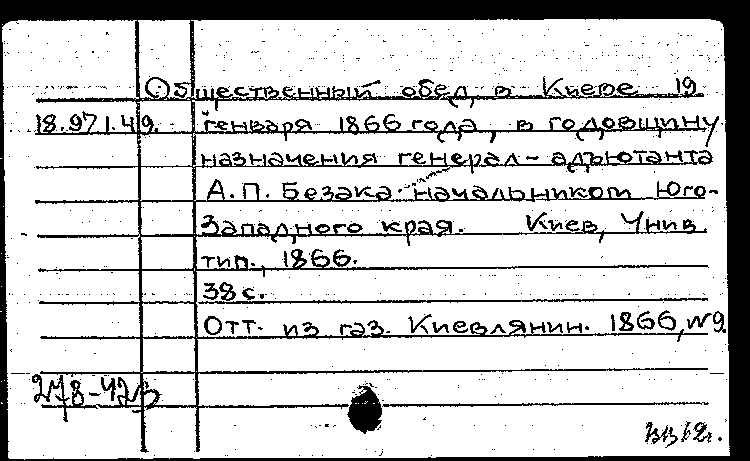 Общественный обед в Киеве 19
18.971.49. генваря 1866 года, в годовщину
назначения генерал-адъютанта
А.П. Безака начальником Юго-
Западного края. Киев, Унив.
тип., 1866.
38 с.
Отт. из газ. Киевлянин. 1866, №9
278-42